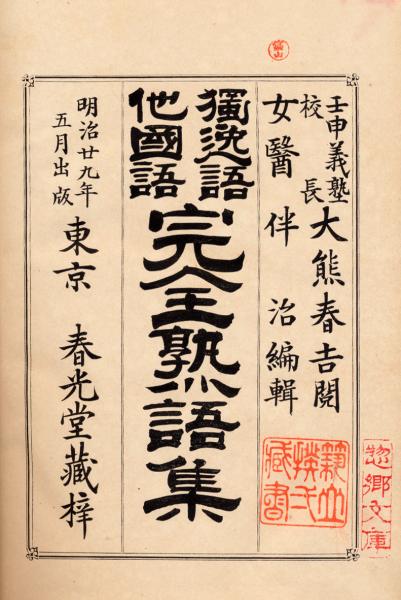 壬申義塾
校長
大熊春吉閲
女醫 伴 治編輯
獨逸語
他國語
完全熟語集
明治廿九年
五月出版
東京 春光堂藏梓
惣郷文庫